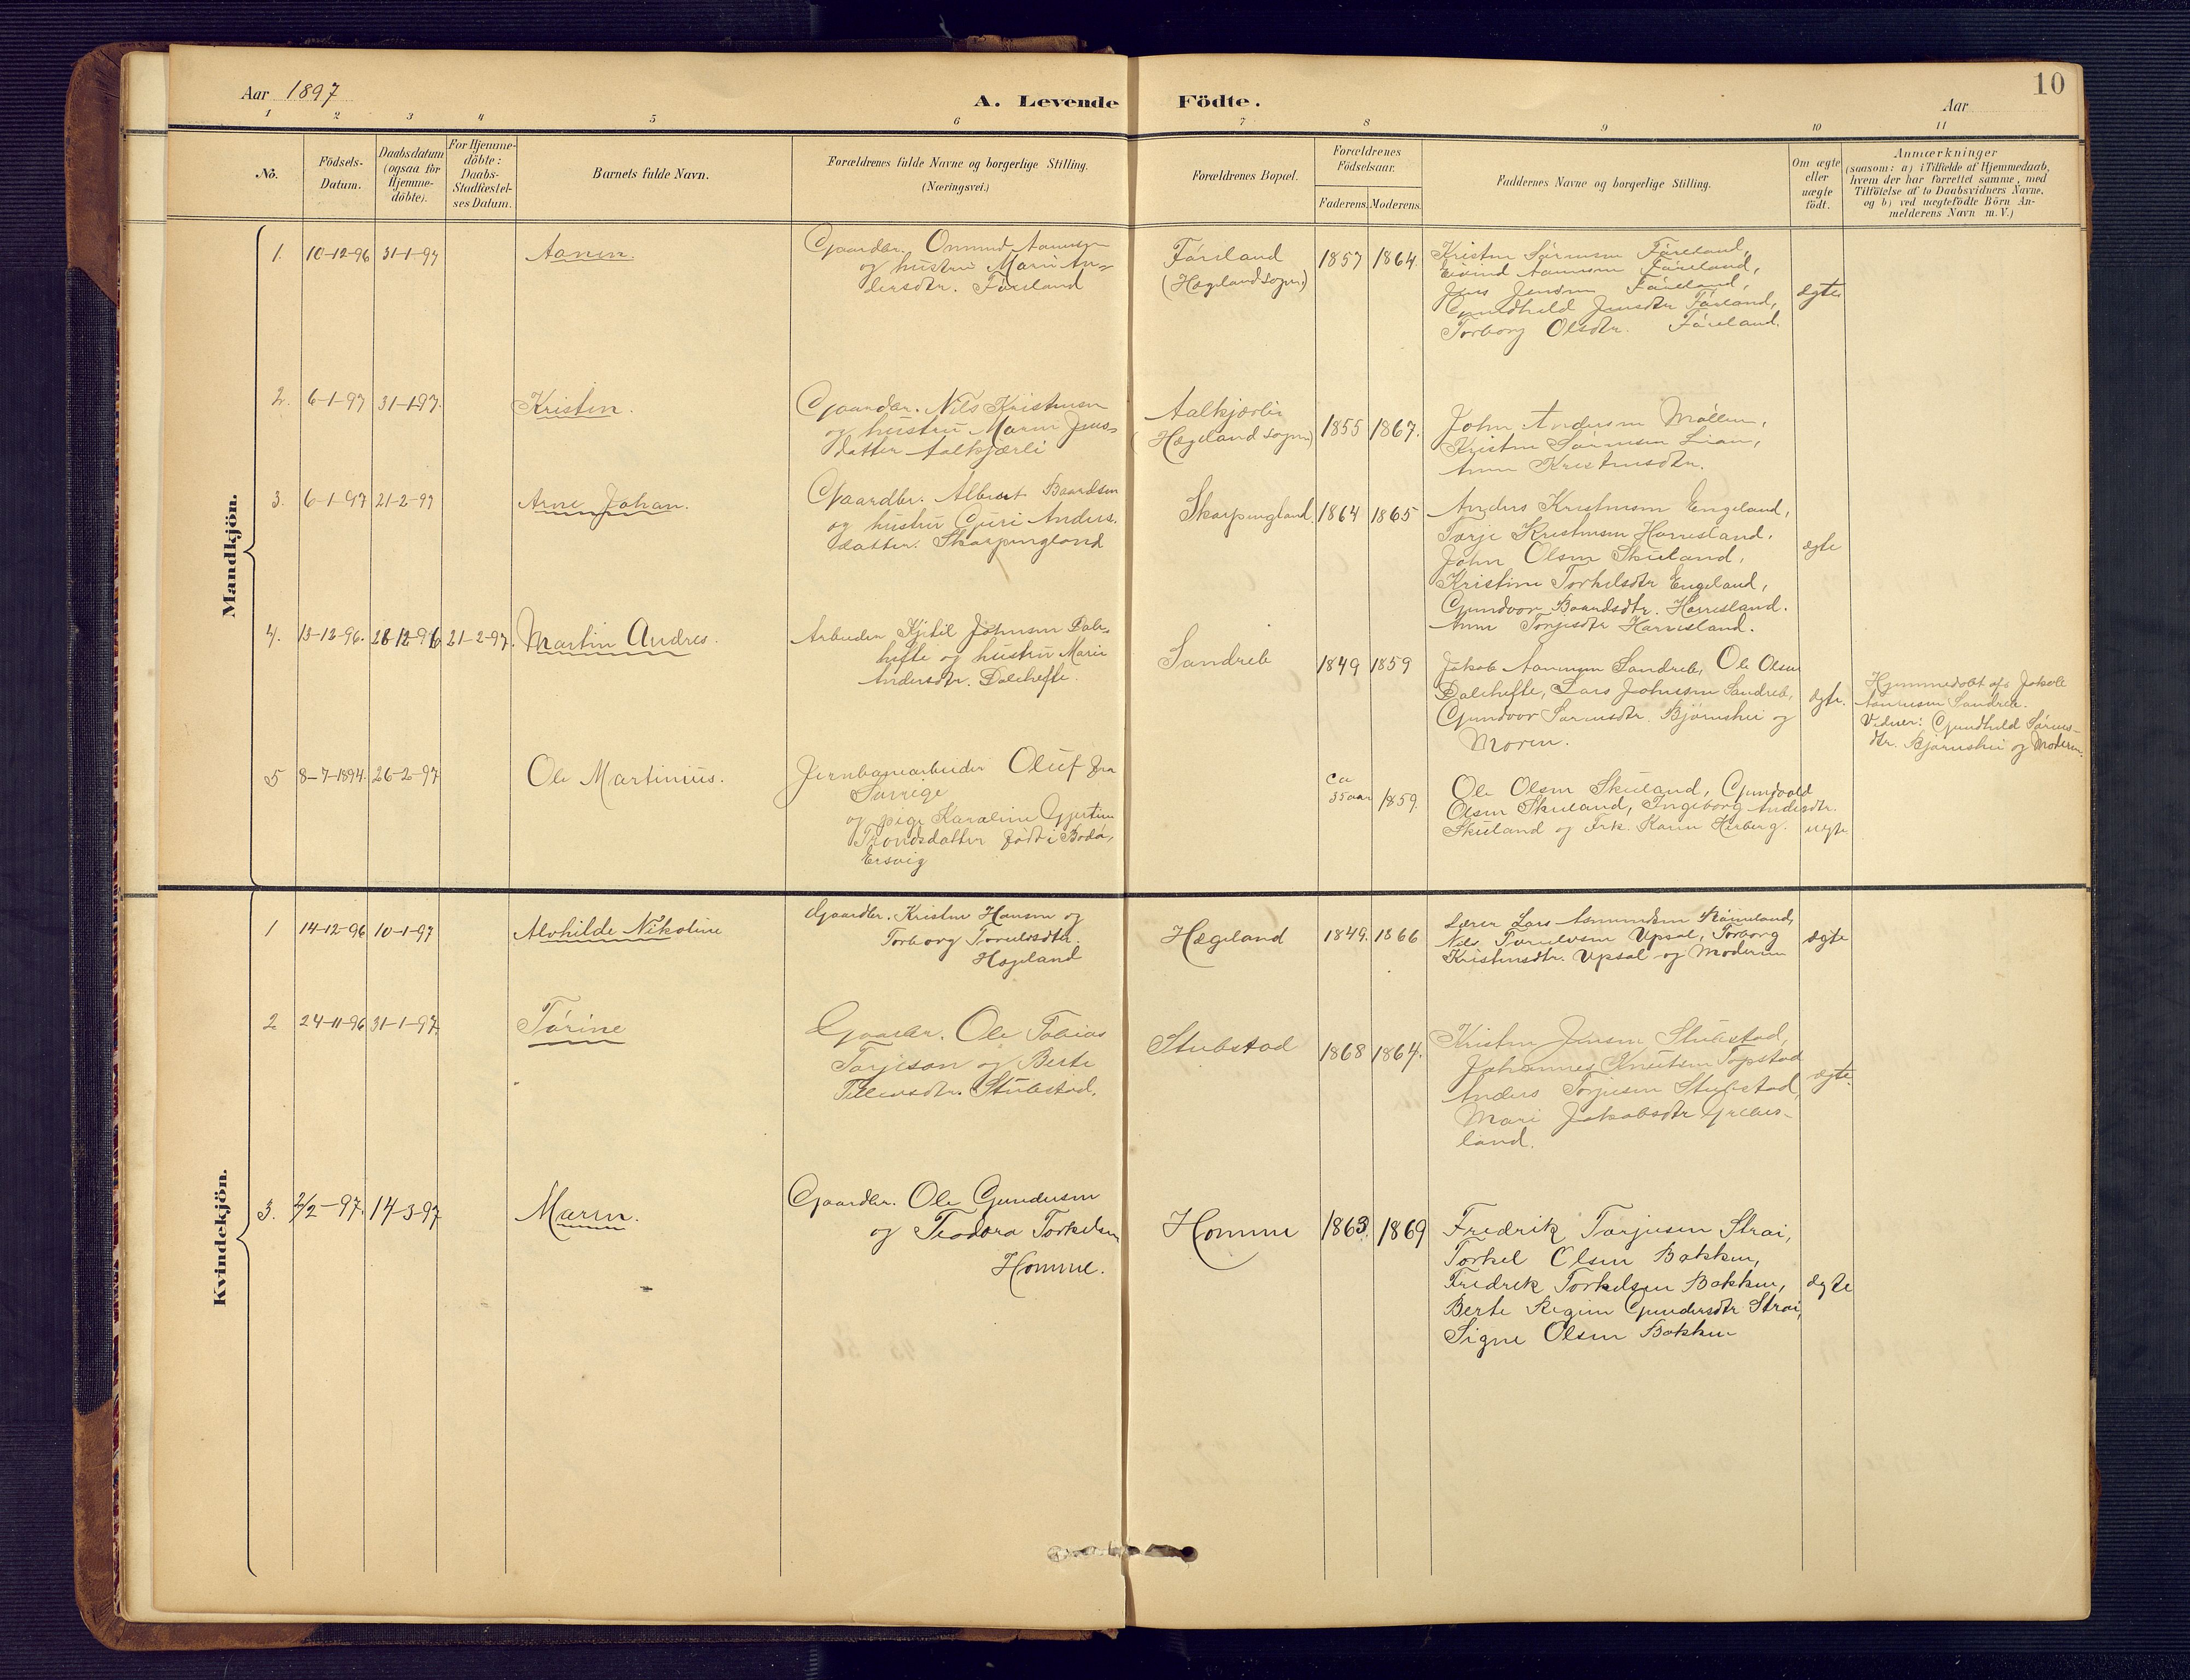 10
Aar 1897
A. Levende Födte.
Aar
1 2 3 4 5 6 7 8 9 10 11
No.
Födsels-
Datum.
Daabsdatum
(ogsaa for
Hjemme-
döbte).
For Hjemme-
döbte:
Daabs-
Stadfæstel-
ses Datum.
Barnets fulde Navn.
Forældrenes fulde Navne og borgerlige Stilling.
(Næringsvei.)
Forældrenes Bopæl.
Forældrenes
Födselsaar.
Faderens. Moderens.
Faddernes Navne og borgerlige Stilling.
Om ægte
eller
uægte
födt.
Anmærkninger
(saasom: a) i Tilfælde af Hjemmedaab,
hvem der har forrettet samme, med
Tilföielse af to Daabsvidners Navne,
og b) ved uægtefödte Börn An-
melderens Navn m. V.)
Mandkjön.
1. 10-12-96 31-1-97
Aanen.
Gaardbr. Onmund Aanensen
og hustru Maren An-
dersdtr. Føreland
Føreland
(Hægeland sogn)
1857 1864.
Kristen Sørensen Føreland,
Eivind Aanensen Føreland,
Jens Jensen Føreland,
Gundhild Jensdtr Føreland,
Torborg Olsdtr. Føreland.
ægte
2. 6-1-97 31-1-97.
Kristen.
Gaardbr. Nils Kristensen
og hustru Maren Jens-
datter Aalkjærli
Aalkjærlir
(Hægeland sogn)
1855 1867.
John Andersen Møllen,
Kristen Sørensen Lian,
Anne Kristensdtr.
3. 6-1-97 21-2-97
Arne Johan.
Gaardbr. Albert Baardsen
og hustru Guri Anders-
datter. Skarpingland
Skarpingland.
1864 1865
Anders Kristensen Engeland,
Torje Kristensen Harresland.
John Olsen Skuland,
Kristine Torkelsdtr Engeland,
Gundvor Baardsdtr. Harresland.
Anne Torjesdtr Harresland.
ægte
4. 13-12-96. 28-12-96 21-2-97.
Martin Andres.
Arbeider Kjetil Johnsen Dale-
hefte og hustru Maren
Andersdtr. Dalehefte.
Sandreb
1849 1859
Jakob Aanensen Sandreb, Ole Olsen
Dalehefte, Lars Johnsen Sandreb,
Gundvor Sørensdtr. Bjørnshei og
Moren.
ægte.
Hjemmedøbt af Jakob
Aanensen Sandreb.
Vidner: Gundhild Sørens-
dtr. Bjørnshei og Moderen.
5 8-7-1894. 26-2-97
Ole Martinius.
Jernbanearbeider Oluf fra
og pige Karoline Gjertine
Trondsdatter født i Bodø,
Ersvig
ca
35 aar 1859.
Ole Olsen Skuland, Gundvald
Olsen Skuland, Ingeborg Andersdtr.
Skuland og Frk. Karen Herberg.
uægte
Kvindekjön.
1 14-12-96 10-1-97
Alvhilde Nikoline
Gaardbr. Kristen Hansen og
Torborg
Hægeland
Hægeland
1849. 1866
Lærer Lars Asmundsen Røineland,
Nils Upsal, Torborg
Kristensdtr. Upsal og Moderen
ægte
2 24-11-96 31-1-97.
Tørine
Gaardbr. Ole Tobias
Torjeson og Berte
Tellevsdtr. Stubstad.
Stubstad
1868 1864.
Kristen Jensen Stubstad,
Johannes Knutsen Topstad
Anders Torjesen Stubstad,
Mari Jakobsdtr Grebes-
land.
ægte.
3. 2/2-97. 14-3-97
Maren.
Gaardbr. Ole Gundersen
og Teodora Torkelsen
Homme.
Homme
1863. 1869
Fredrik Torjesen Strai,
Torkel Olsen Bakken,
Fredrik Torkelsen Bakken,
Berte Regine Gundersdtr Strai,
Signe Olsen Bakken
ægte